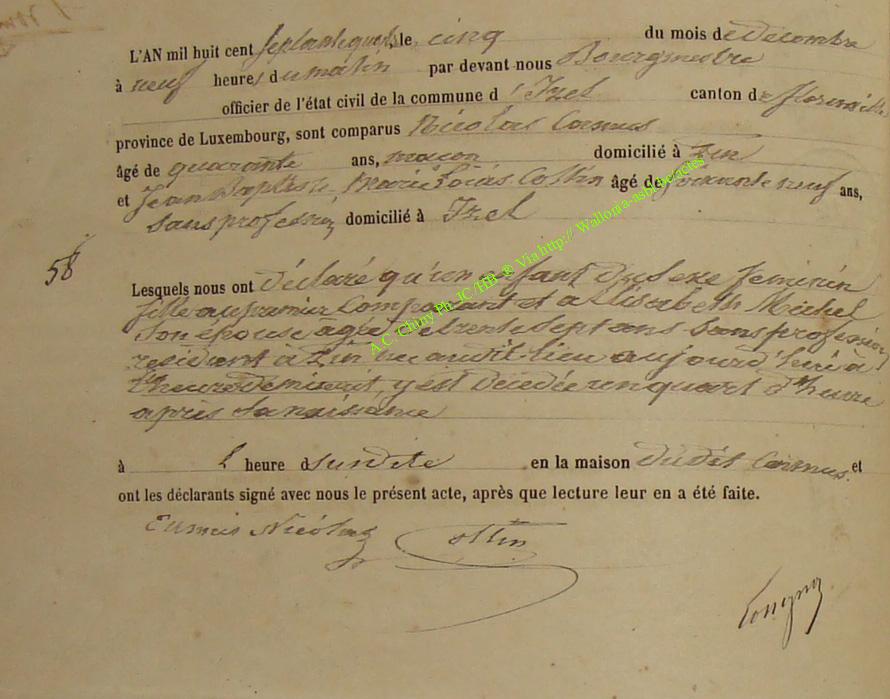 L'AN mil huit cent septante quatre, le cinq du mois de Décembre
à neuf heures du matin par devant nous Bourgmestre
officier de l'état civil de la commune d'Izel canton de florenville
province de Luxembourg, sont comparus Nicolas Camus
âgé de quarante ans, maçon domicilié à Pin
et Jean Baptiste, Marie Louis Collin âgé de soixante neuf ans,
sans profession domicilié à Izel
58
Lesquels nous ont déclaré qu'un enfant du sexe feminin
fille au premier Comparant et a Elisabeth Michel
son épouse agée de trente sept ans sans profession
residant à Pin né audit lieu aujourd'hui à
heure de minuit, y est décédé un quart d'heure
après sa naissance
à l' heure dsusdite en la maison dudit Camus. et
ont les déclarants signé avec nous le présent acte, après que lecture leur en a été faite.
Camus Nicolas Collin
A.C. Chiny Ph. JC /HB ® Via http:// Wallonia-asbl-be/actes